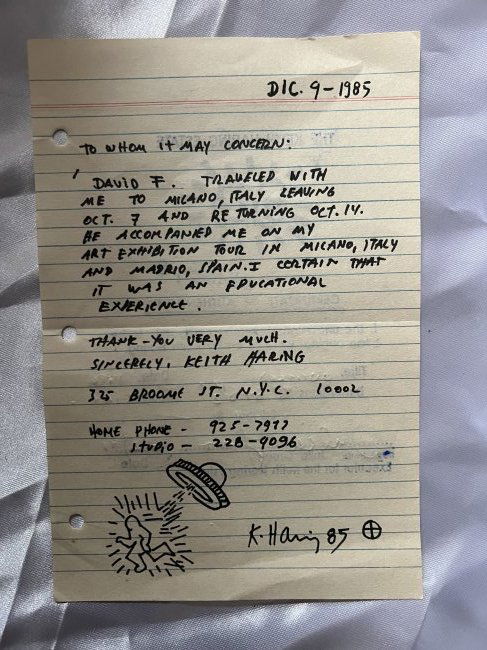 DIC. 9-1985
TO WHOM IT MAY CONCERN:
DAVID F. TRAVELED WITH
ME TO MILANO, ITALY LEAVING
OCT. 7 AND RETURNING OCT. 14.
HE ACCOMPANIED ME ON MY
ART EXHIBITION TOUR IN MILANO, ITALY
AND MADRID, SPAIN. I CERTAIN THAT
IT WAS AN EDUCATIONAL
EXPERIENCE.
THANK-YOU VERY MUCH.
SINCERELY, KEITH HARING
325 BROOME ST. N.Y.C. 10002
HOME PHONE - 925-7977
STUDIO - 228-9096
K. Haring 85